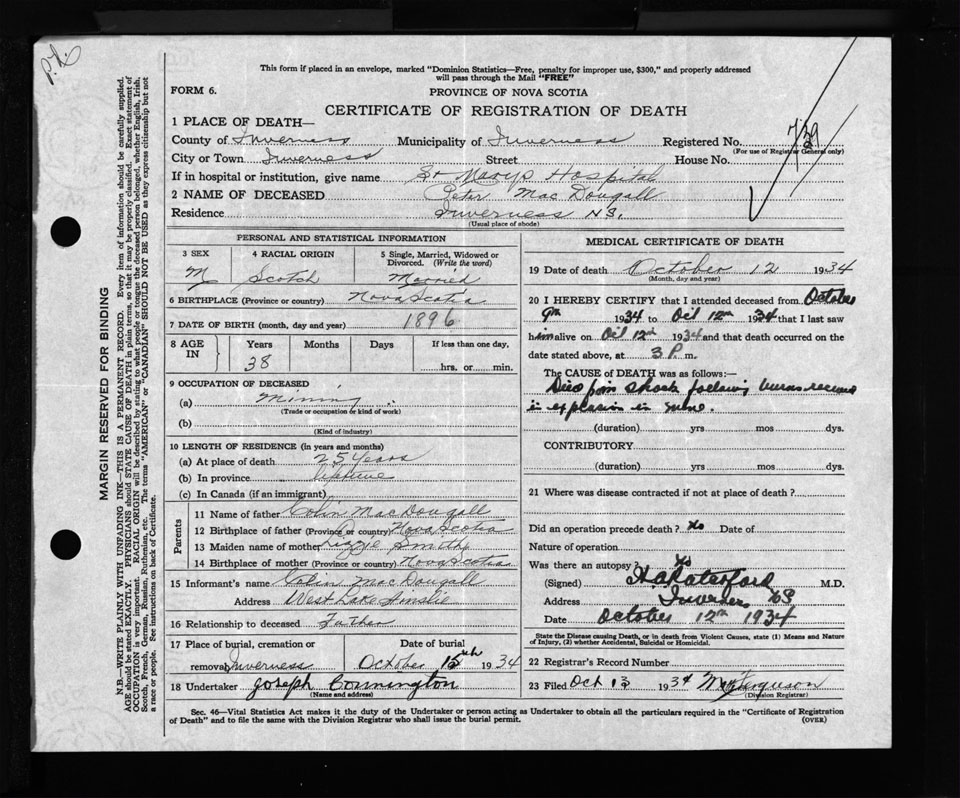 This form if placed in an envelope, marked "Dominion Statistics—Free, penalty for improper use, $300," and properly addressed
will pass through the Mail "FREE"
FORM 6.
PROVINCE OF NOVA SCOTIA
CERTIFICATE OF REGISTRATION OF DEATH
1 PLACE OF DEATH—
County of Inverness Municipality of Inverness Registered No. 739
(For use of Registrar General only)
City or Town Inverness Street House No.
If in hospital or institution, give name St Marys Hospital
2 NAME OF DECEASED Peter Mac Dougall
Residence Inverness NS.
(Usual place of abode)
PERSONAL AND STATISTICAL INFORMATION
3 SEX M
4 RACIAL ORIGIN Scotch
5 Single, Married, Widowed or
Divorced. (Write the word)
Married
6 BIRTHPLACE (Province or country) Nova Scotia
7 DATE OF BIRTH (month, day and year) 1896
8 AGE IN Years 38 Months Days If less than one day,
hrs. or min.
9 OCCUPATION OF DECEASED
(a) Mining
(Trade or occupation or kind of work)
(b)
(Kind of industry)
10 LENGTH OF RESIDENCE (in years and months)
(a) At place of death 25 Years
(b) In province lifetime
(c) In Canada (if an immigrant)
Parents
11 Name of father Colin Mac Dougall
12 Birthplace of father (Province or country) Nova Scotia
13 Maiden name of mother Lizzie Smith
14 Birthplace of mother (Province or country) Nova Scotia
15 Informant's name Colin Mac Dougall
Address West Lake Ainslie
16 Relationship to deceased Father
17 Place of burial, cremation or
removal Inverness
Date of burial
October 15th 1934
18 Undertaker Joseph Connington
(Name and address)
MEDICAL CERTIFICATE OF DEATH
19 Date of death October 12 1934
(Month, day and year)
20 I HEREBY CERTIFY that I attended deceased from October
9th 1934 to Oct 12th 1934 that I last saw
him alive on Oct 12th 1934 and that death occurred on the
date stated above, at 3 P. m.
The CAUSE OF DEATH was as follows:—
Died from shock following burns received
in explosion in mine.
(duration) yrs mos dys.
CONTRIBUTORY
(duration) yrs mos dys.
21 Where was disease contracted if not at place of death?
Did an operation precede death? No Date of
Nature of operation
Was there an autopsy? No
(Signed) M.D.
Address Inverness NS
Date October 12th 1934
State the Disease causing Death, or in death from Violent Causes, state (1) Means and Nature
of Injury, (2) whether Accidental, Suicidal or Homicidal.
22 Registrar's Record Number
23 Filed Oct 13 1934 Ferguson
(Division Registrar)
Sec. 46—Vital Statistics Act makes it the duty of the Undertaker or person acting as Undertaker to obtain all the particulars required in the "Certificate of Registration
of Death" and to file the same with the Division Registrar who shall issue the burial permit.
(OVER)
MARGIN RESERVED FOR BINDING
N.B.—WRITE PLAINLY WITH UNFADING INK—THIS IS A PERMANENT RECORD. Every item of information should be carefully supplied.
AGE should be stated EXACTLY. PHYSICIANS should STATE CAUSE OF DEATH in plain terms, so that it may be properly classified. Exact statement of
OCCUPATION is very important. RACIAL ORIGIN will be described by stating to what people or tongue the deceased person belonged, whether English, Irish,
Scotch, French, German, Russian, Ruthenian, etc. The terms "AMERICAN" or "CANADIAN" SHOULD NOT BE USED as they express citizenship but not
a race or people. See instructions on back of Certificate.